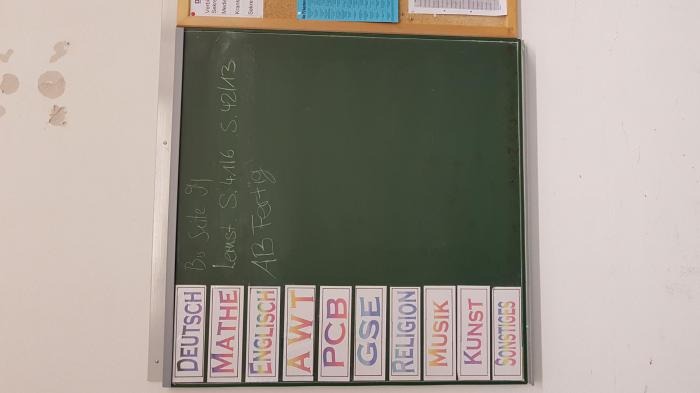 DEUTSCH Bu Seite 91
MATHE Lernst. S. 41/6 S. 42/13
ENGLISCH AB Fertig
AWT
PCB
GSE
RELIGION
MUSIK
KUNST
SONSTIGES